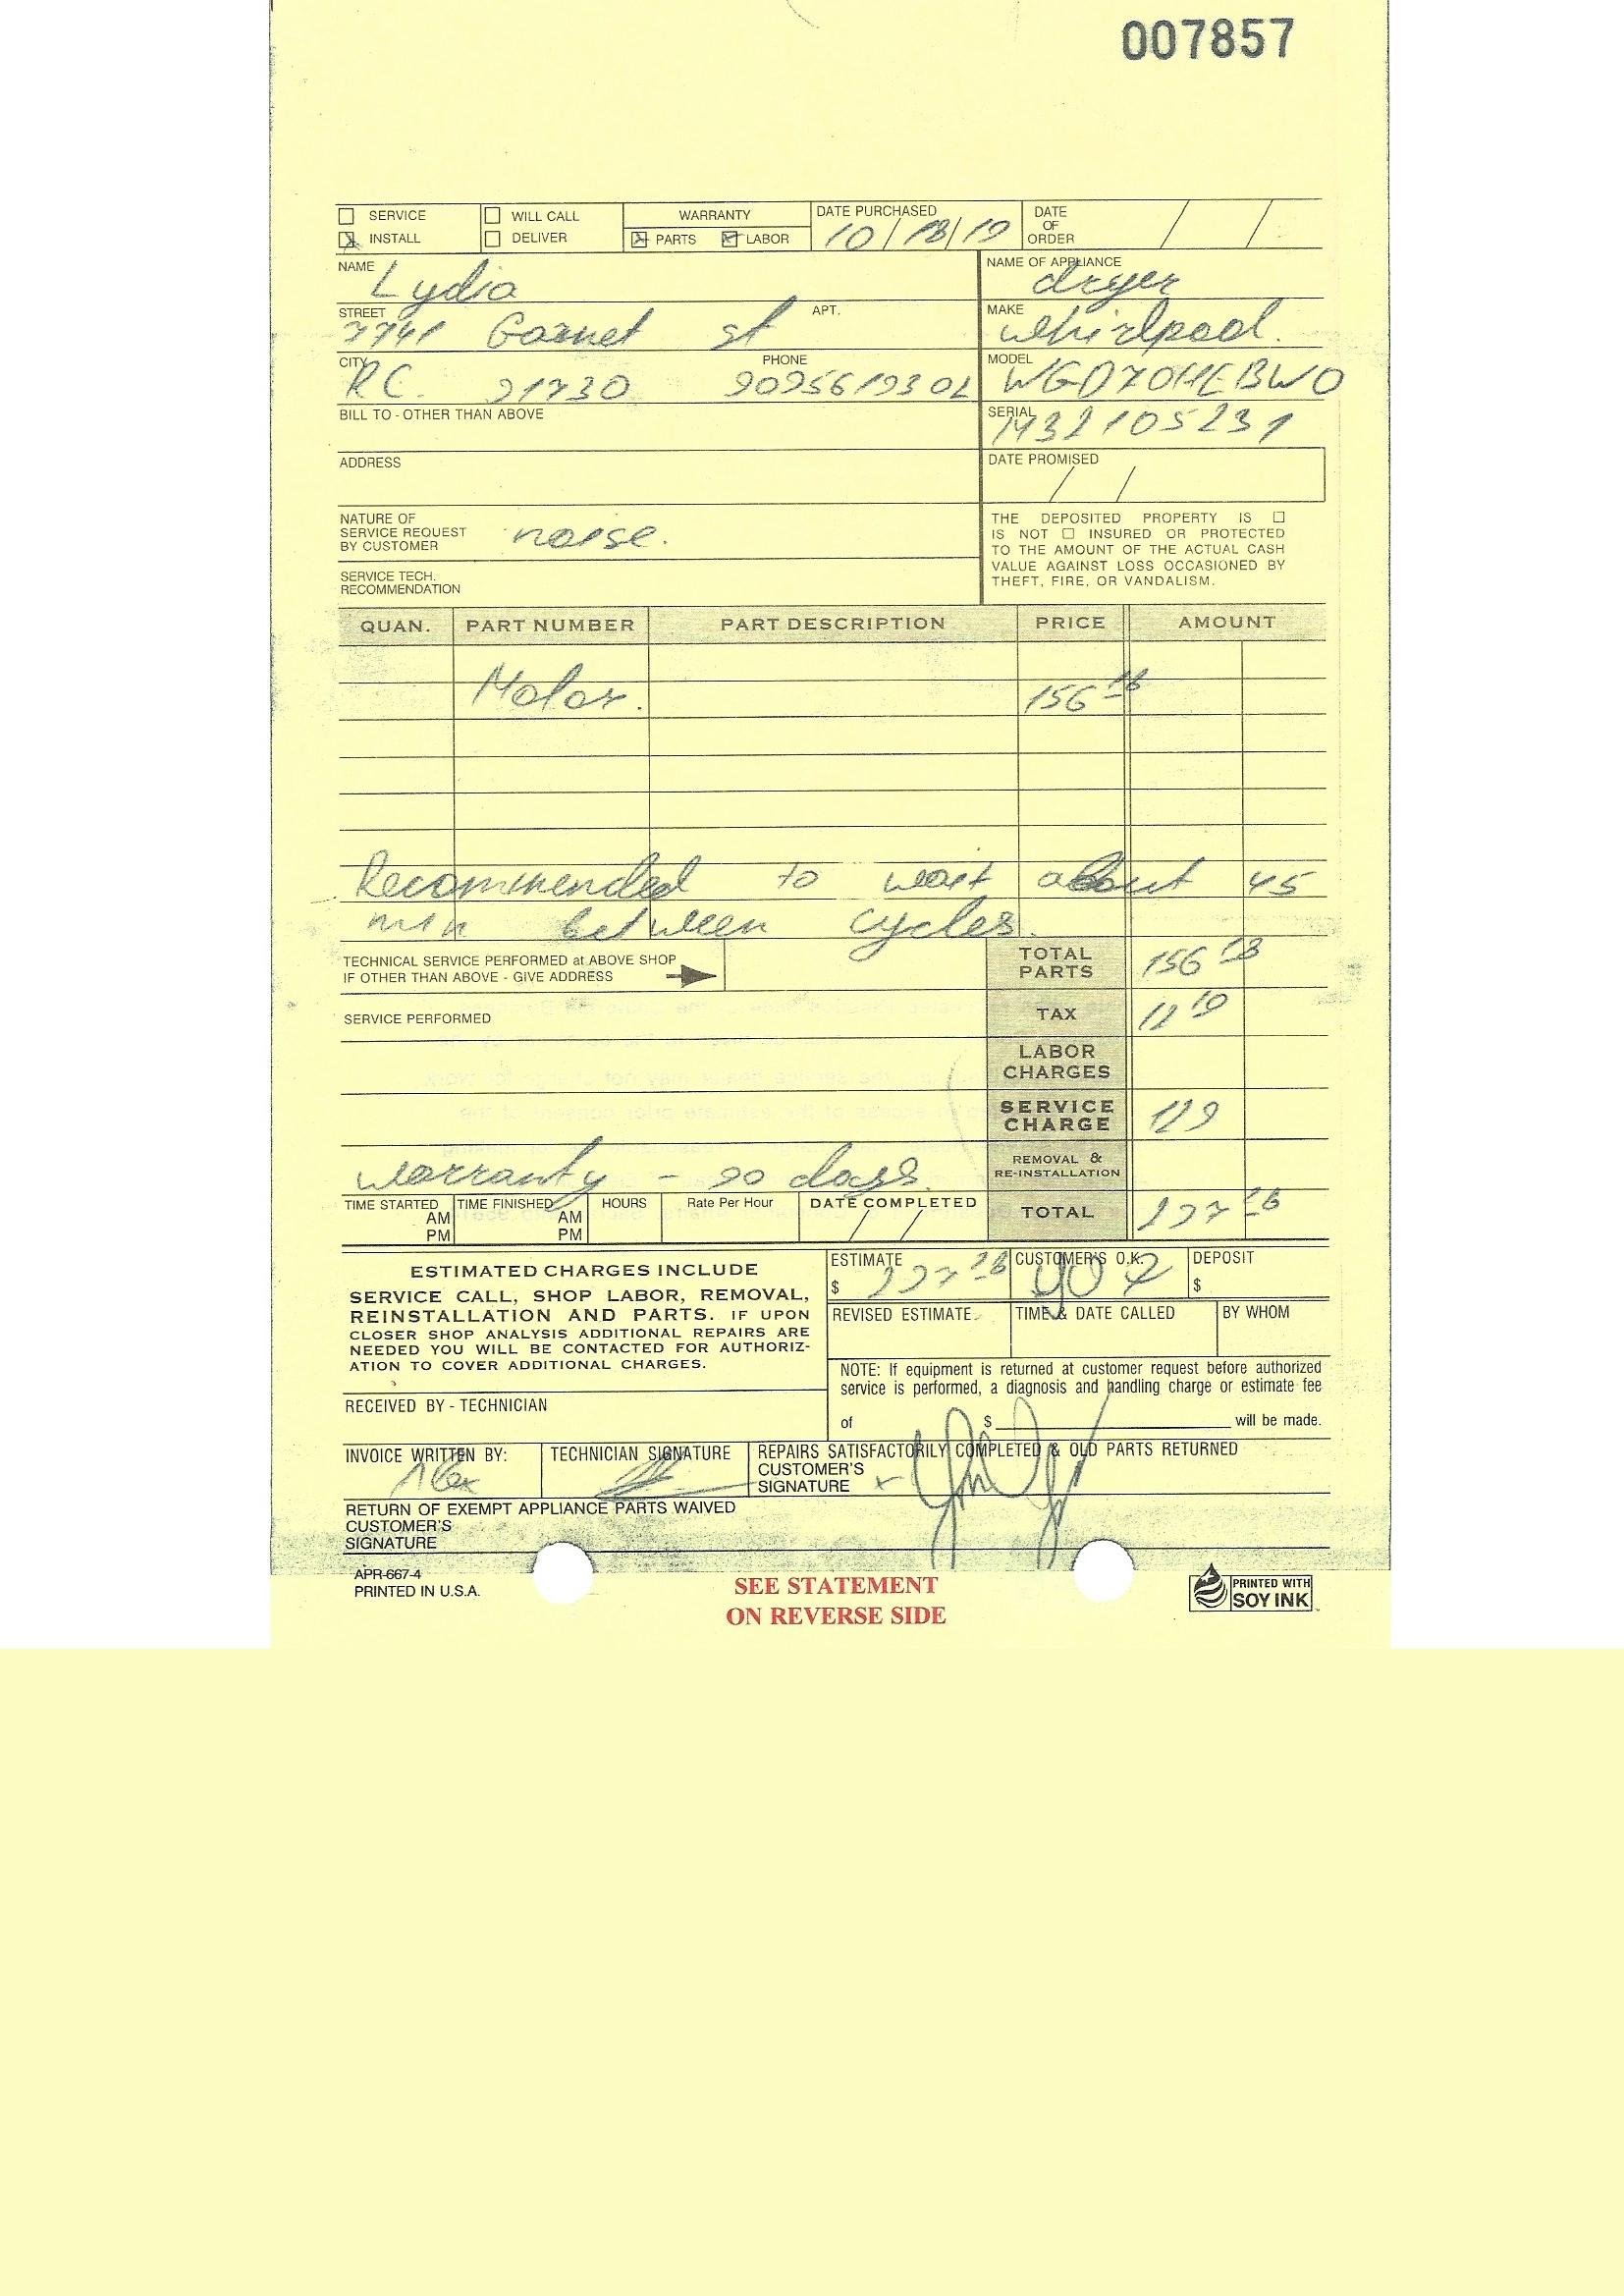 007857
SERVICE WILL CALL WARRANTY DATE PURCHASED DATE OF ORDER
INSTALL DELIVER PARTS LABOR 10/18/19 / /
NAME Lydia NAME OF APPLIANCE dryer
STREET 7741 Garnet st APT. MAKE whirlpool.
CITY R.C. 91730 PHONE MODEL WGD70HEBW0
BILL TO - OTHER THAN ABOVE SERIAL
ADDRESS DATE PROMISED / /
NATURE OF
SERVICE REQUEST
BY CUSTOMER noise.
SERVICE TECH.
RECOMMENDATION
THE DEPOSITED PROPERTY IS
IS NOT INSURED OR PROTECTED
TO THE AMOUNT OF THE ACTUAL CASH
VALUE AGAINST LOSS OCCASIONED BY
THEFT, FIRE, OR VANDALISM.
QUAN. PART NUMBER PART DESCRIPTION PRICE AMOUNT
Motor. 156
Recommended to wait about 45
min between cycles.
TECHNICAL SERVICE PERFORMED at ABOVE SHOP
IF OTHER THAN ABOVE - GIVE ADDRESS
TOTAL PARTS 156
SERVICE PERFORMED TAX
LABOR CHARGES
SERVICE CHARGE
warranty - 90 days. REMOVAL & RE-INSTALLATION
TIME STARTED AM PM TIME FINISHED AM PM HOURS Rate Per Hour DATE COMPLETED / / TOTAL
ESTIMATED CHARGES INCLUDE
SERVICE CALL, SHOP LABOR, REMOVAL,
REINSTALLATION AND PARTS. IF UPON
CLOSER SHOP ANALYSIS ADDITIONAL REPAIRS ARE
NEEDED YOU WILL BE CONTACTED FOR AUTHORIZ-
ATION TO COVER ADDITIONAL CHARGES.
ESTIMATE $ CUSTOMER'S O.K. DEPOSIT $
REVISED ESTIMATE TIME & DATE CALLED BY WHOM
NOTE: If equipment is returned at customer request before authorized
service is performed, a diagnosis and handling charge or estimate fee
of $ will be made.
RECEIVED BY - TECHNICIAN
INVOICE WRITTEN BY: Alex TECHNICIAN SIGNATURE REPAIRS SATISFACTORILY COMPLETED & OLD PARTS RETURNED
CUSTOMER'S
SIGNATURE x
RETURN OF EXEMPT APPLIANCE PARTS WAIVED
CUSTOMER'S
SIGNATURE
APR-667-4
PRINTED IN U.S.A.
SEE STATEMENT
ON REVERSE SIDE
PRINTED WITH
SOY INK